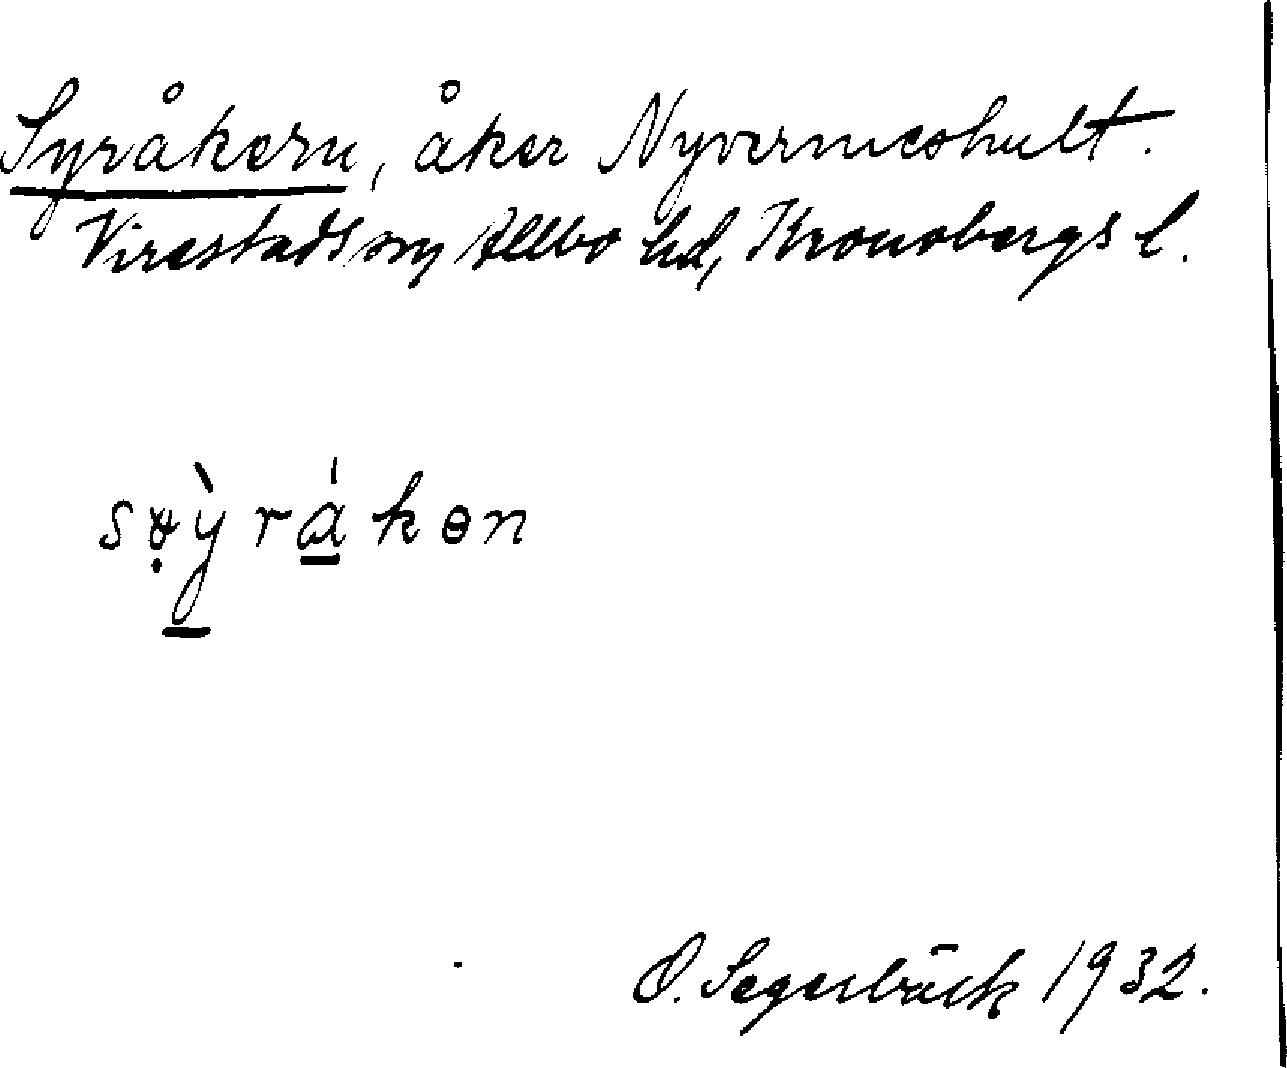 Syråkern, åker Nyvermeshult.
Virestads sn, Allbo hd, Kronobergs l.
O. Segerbäck 1932.